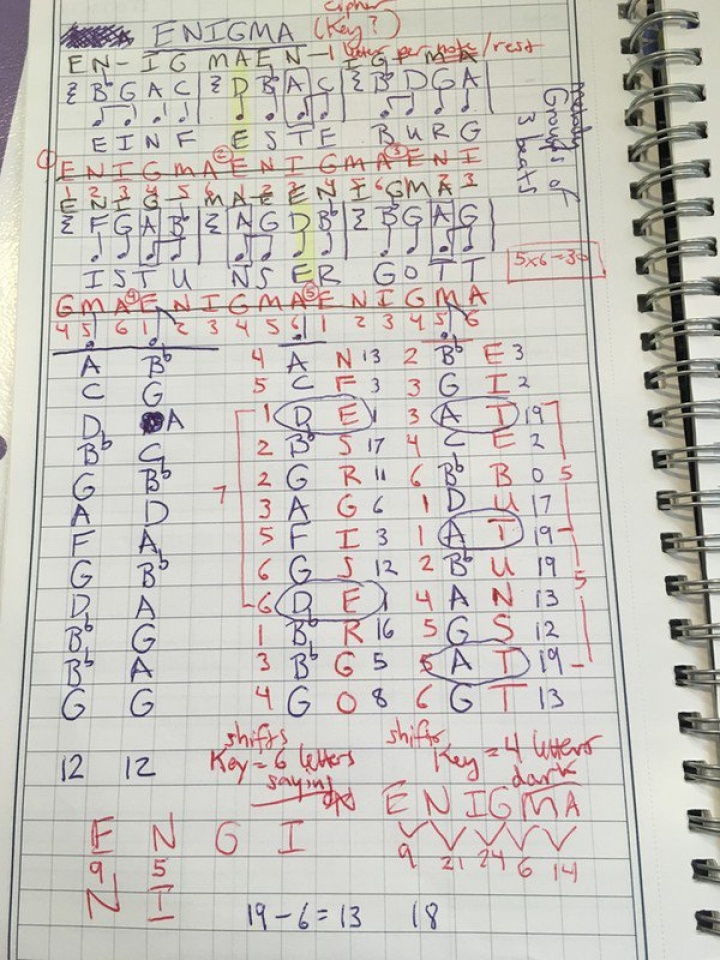 cipher
ENIGMA (Key?)
1 letter per note/rest
EN-IG MAEN-IG-MA
B♭ G A C D B♭ A C B♭ D G A
E I N F E S T E B U R G
Melody Groups of 3 beats
① E N I G M A ② E N I G M A ③ E N I
1 2 3 4 5 6 1 2 3 4 5 6 1 2 3
E N I G - M A E E N I G M A
F G A B♭ A G D B♭ B♭ G A G
I S T U N S E R G O T T
5x6=30
G M A ④ E N I G M A ⑤ E N I G M A
4 5 6 1 2 3 4 5 6 1 2 3 4 5 6
A B♭ 4 A N 13 2 B♭ E 3
C G 5 C F 3 3 G I 2
D A 1 D E 1 3 A T 19
B♭ C 2 B♭ S 17 4 C E 2
G B♭ 2 G R 11 6 B♭ B 0 5
A D 7 3 A G 6 1 D U 17
F A 5 F I 3 1 A T 19
G B♭ 6 G S 12 2 B♭ U 19 5
D A 6 D E 1 4 A N 13
B♭ G 1 B♭ R 16 5 G S 12
B♭ A 3 B♭ G 5 5 A T 19
G G 4 G O 8 6 G T 13
shifts shifts
12 12 Key = 6 letters Key = 4 letters
saying dark
E N I G M A
E N G I 9 21 24 6 14
9 5
N I 19-6=13 18